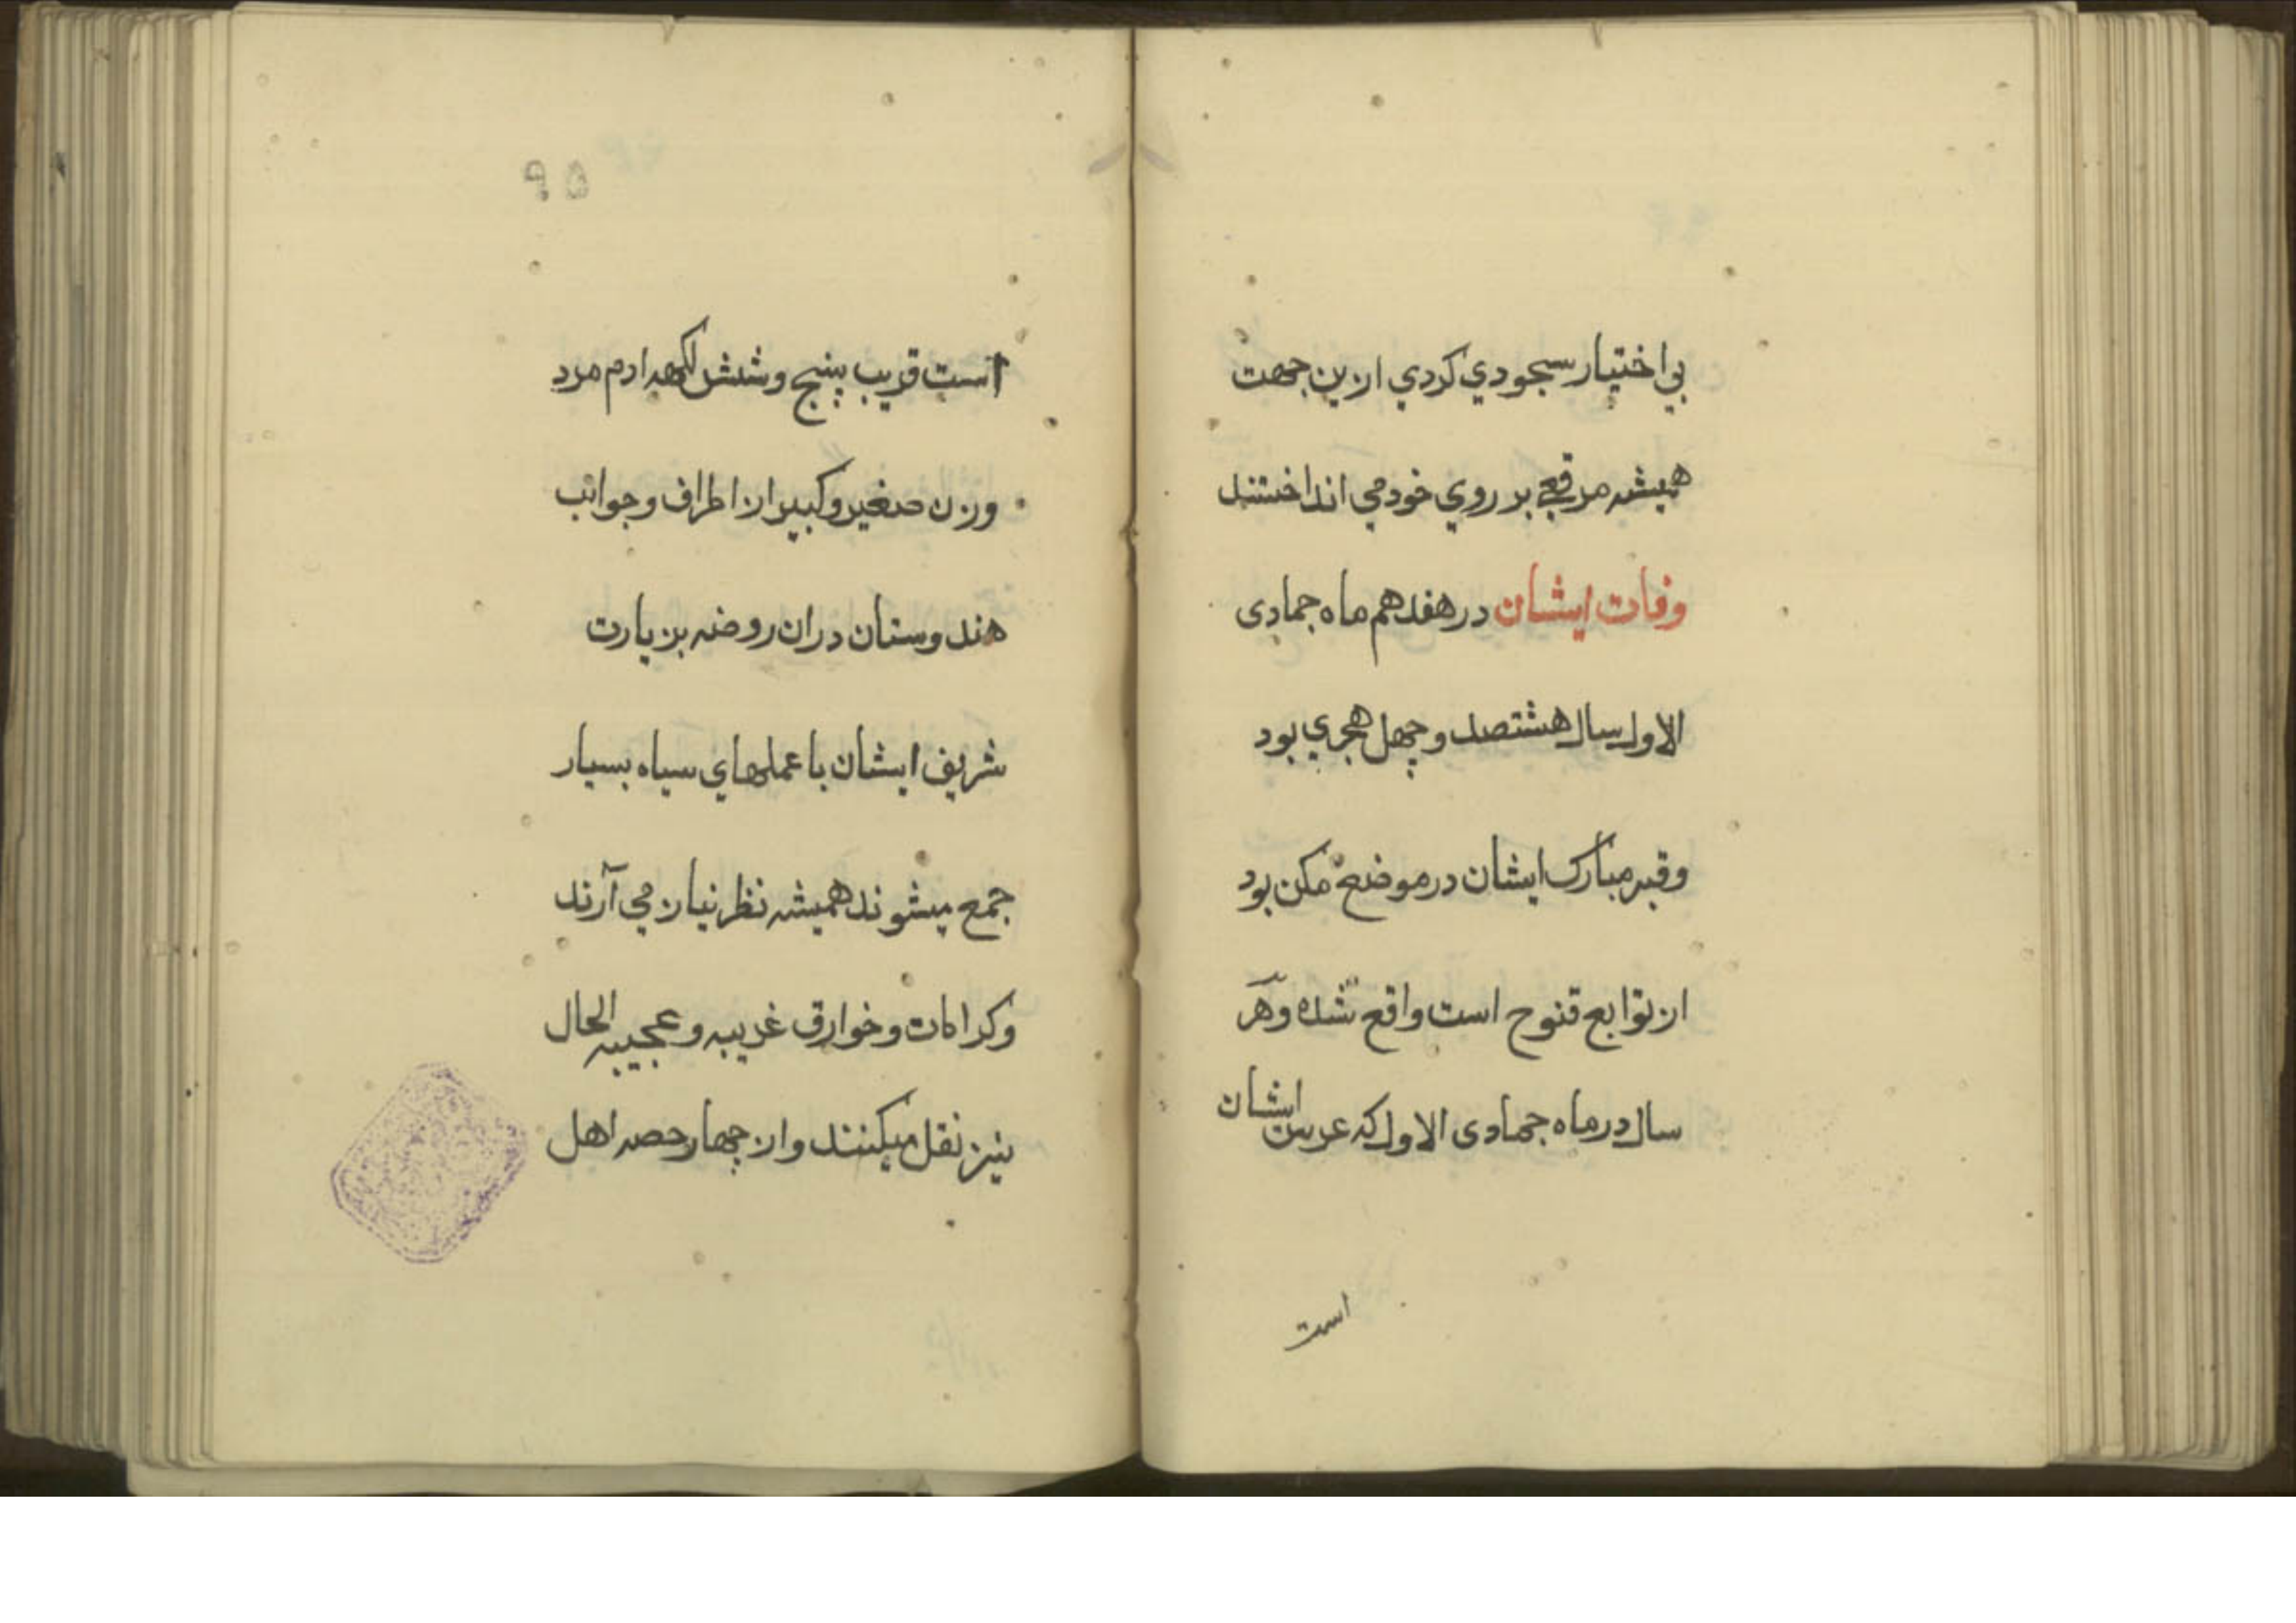 بی اختیار سجودي کردي ازین جهت
همیشه مرقعی بر روي خود می انداختند
وفات ایشان در هفدهم ماه جمادی
الاول سال هشتصد و چهل هجري بود
وقبر مبارک ایشان در موضع مکن بود
از توابع قنوج است واقع شده و هر
سال در ماه جمادی الاول که عرس ایشان
است
۹۵
است قریب پنج و شش لکهه ادم مرد
و زن صغیر و کبیر از اطراف و جوانب
هندوستان دران روضه بزیارت
شریف ایشان با عملهاي سیاه بسیار
جمع میشوند همیشه نظر نیاز می آرند
و کرامات و خوارق غریبه و عجیبه الحال
نیز نقل میکنند و از چهار حصه اهل